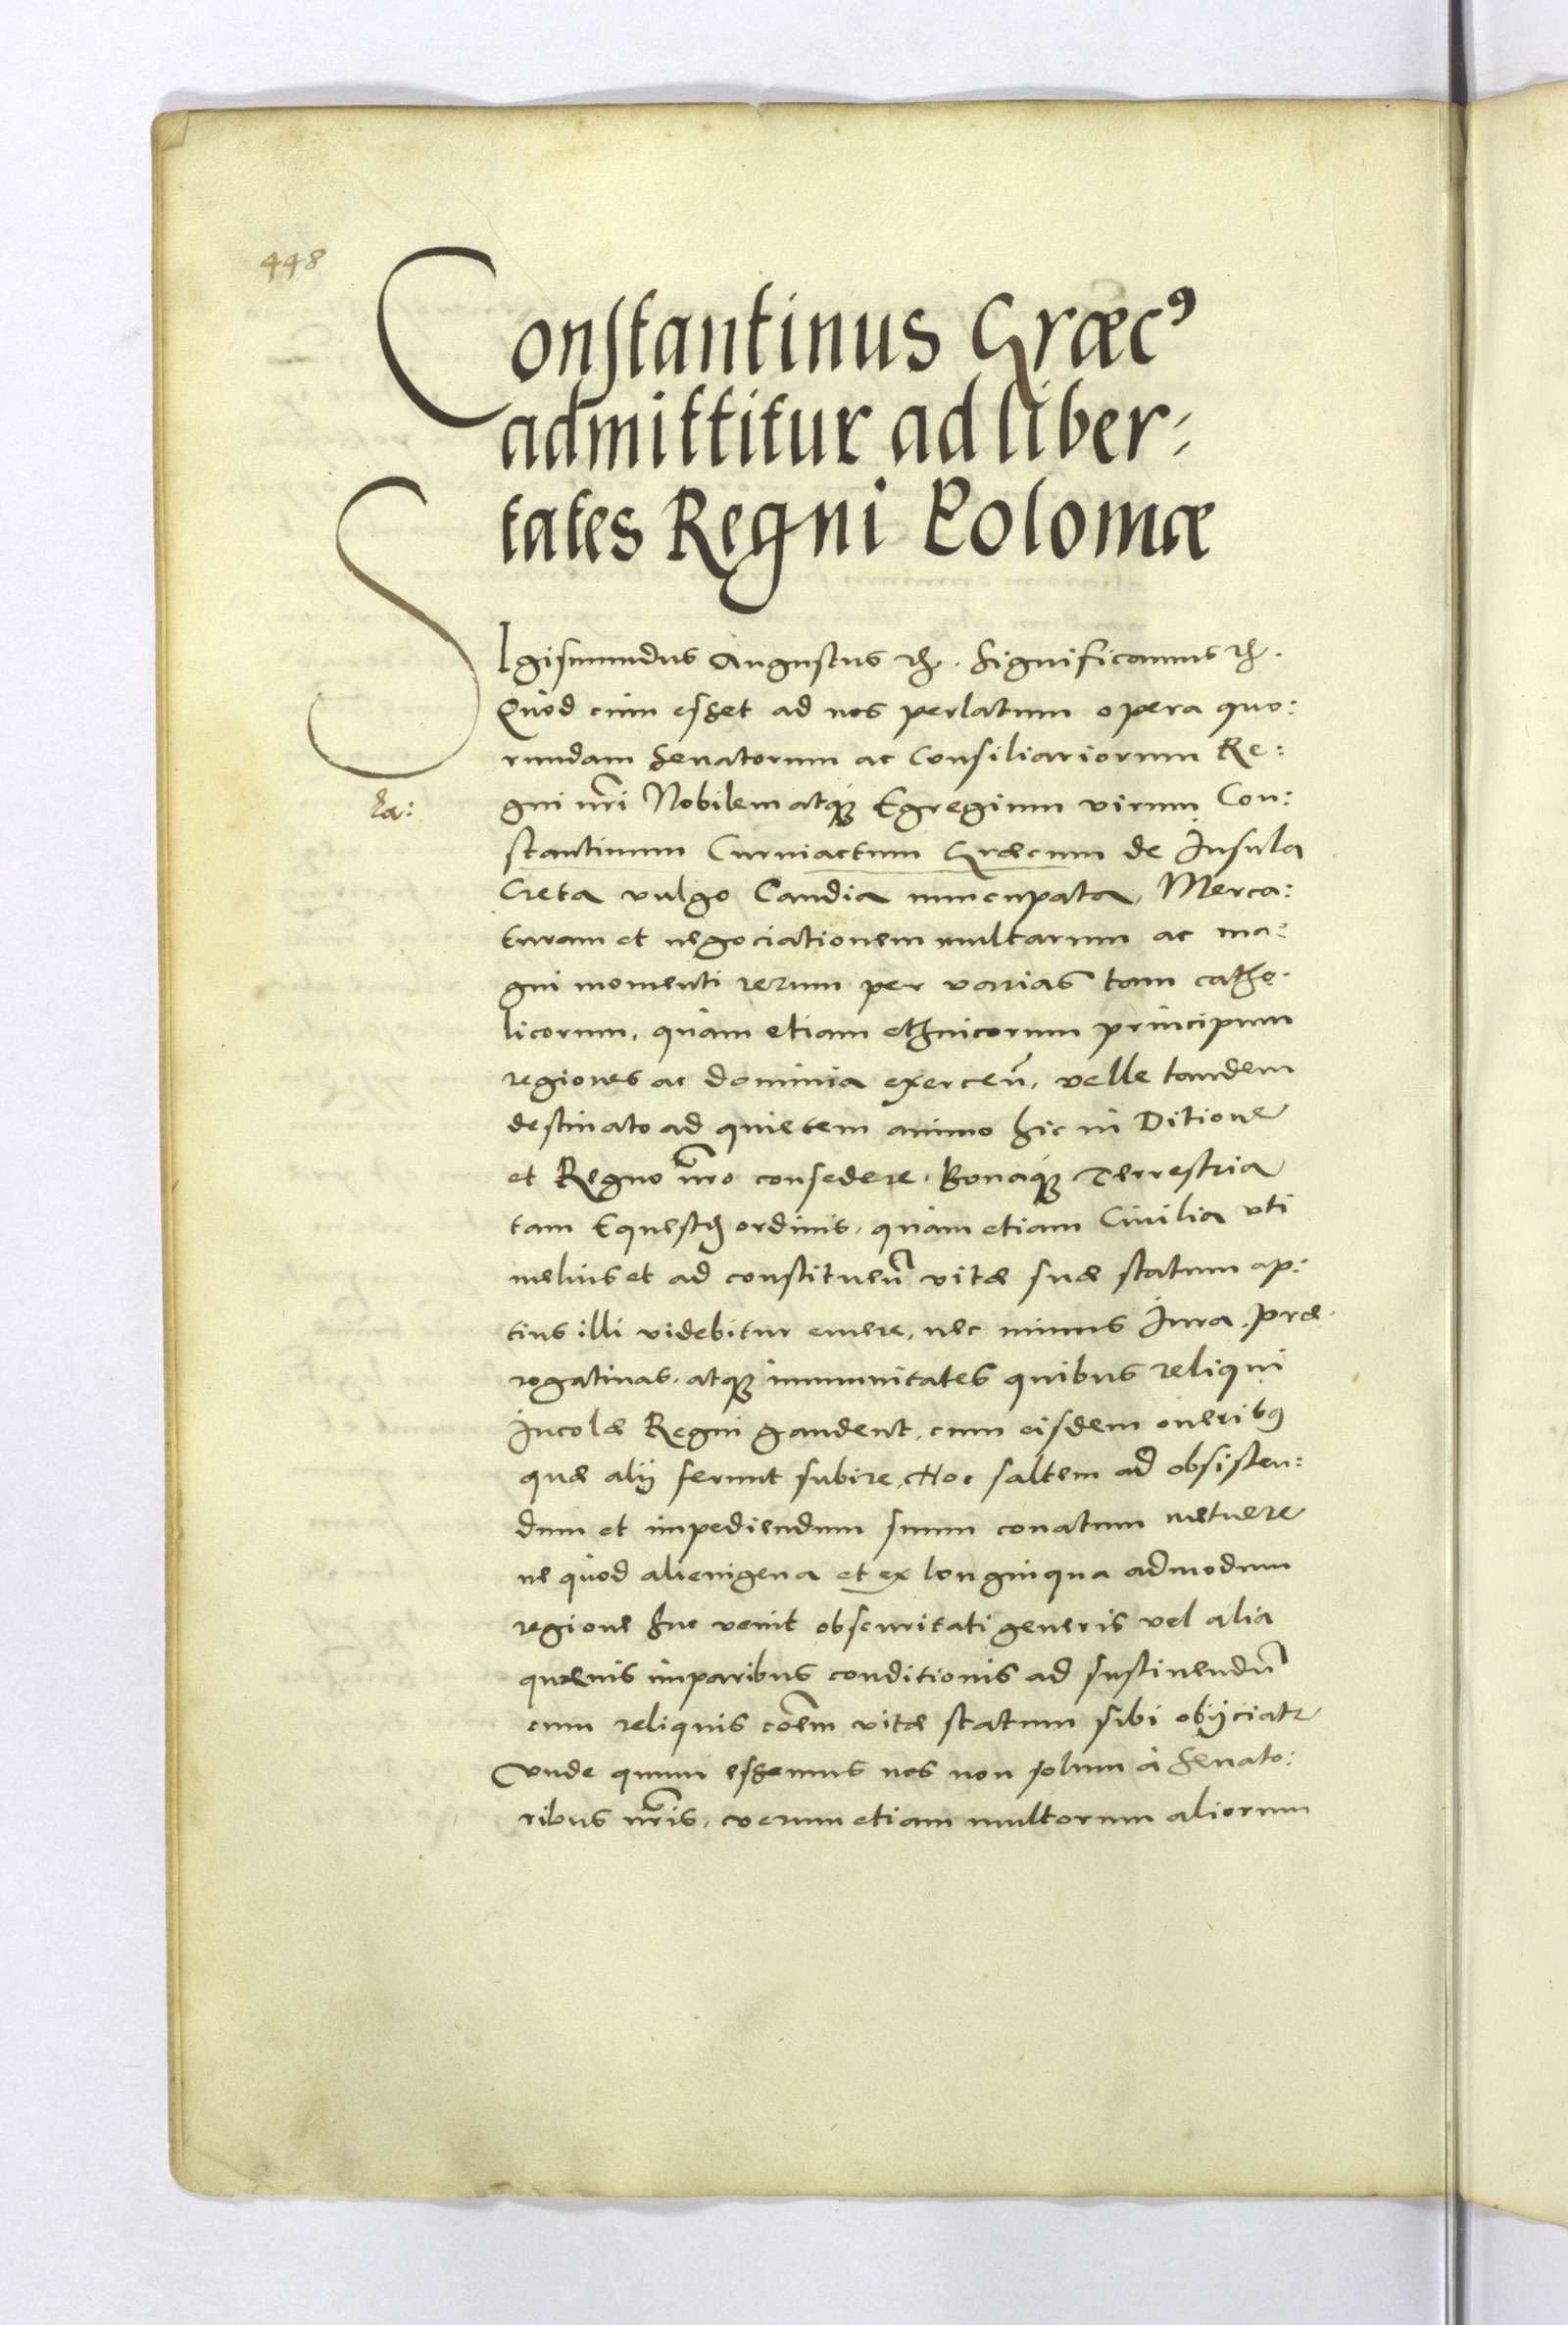 448
Constantinus Græcꝰ
admittitur ad liber⸗
tates Regni Poloniæ
SIgismundus Augustus etc. Significamus etc.
Quòd cùm esset ad nos perlatum opera quo:
rundam Senatorum ac Consiliariorum Re:
ha:
gni nr̃i Nobilem atqꝫ Egregium virum Con:
stantinum Curniactum Græcum de Insula
Creta vulgo Candia nuncupata, Merca:
turam et negociationem multarum ac ma:
gni momenti rerum per varias tam catho.
licorum, quàm etiam ethnicorum principum
regiones ac dominia exerceñ, velle tandem
destinato ad quietem animo hic in Ditione
et Regno nr̃o consedere, Bonaqꝫ Terrestria
tam Equestris ordinis, quàm etiam Civilia vti
melius et ad constitueñ vitæ suæ statum ap:
tius illi videbitur emere, nec minus Iura, præ.
rogatiuas, atqꝫ immunitates quibus reliqui
Incolæ Regni gaudent, cum eisdem oneribꝰ
quæ alij ferunt subire, Hoc saltem ad obsisten:
dum et impediendum suum conatum metuere
ne quòd alienigena et ex longinqua admodum
regione huc venit obscuritati generis vel alia
quævis imparibus conditionis ad sustinendũ
cum reliquis cõem vitæ statum sibi obijciatr
Vnde quum essemus nos non solum à Senato:
ribus nr̃is, verum etiam multorum aliorum